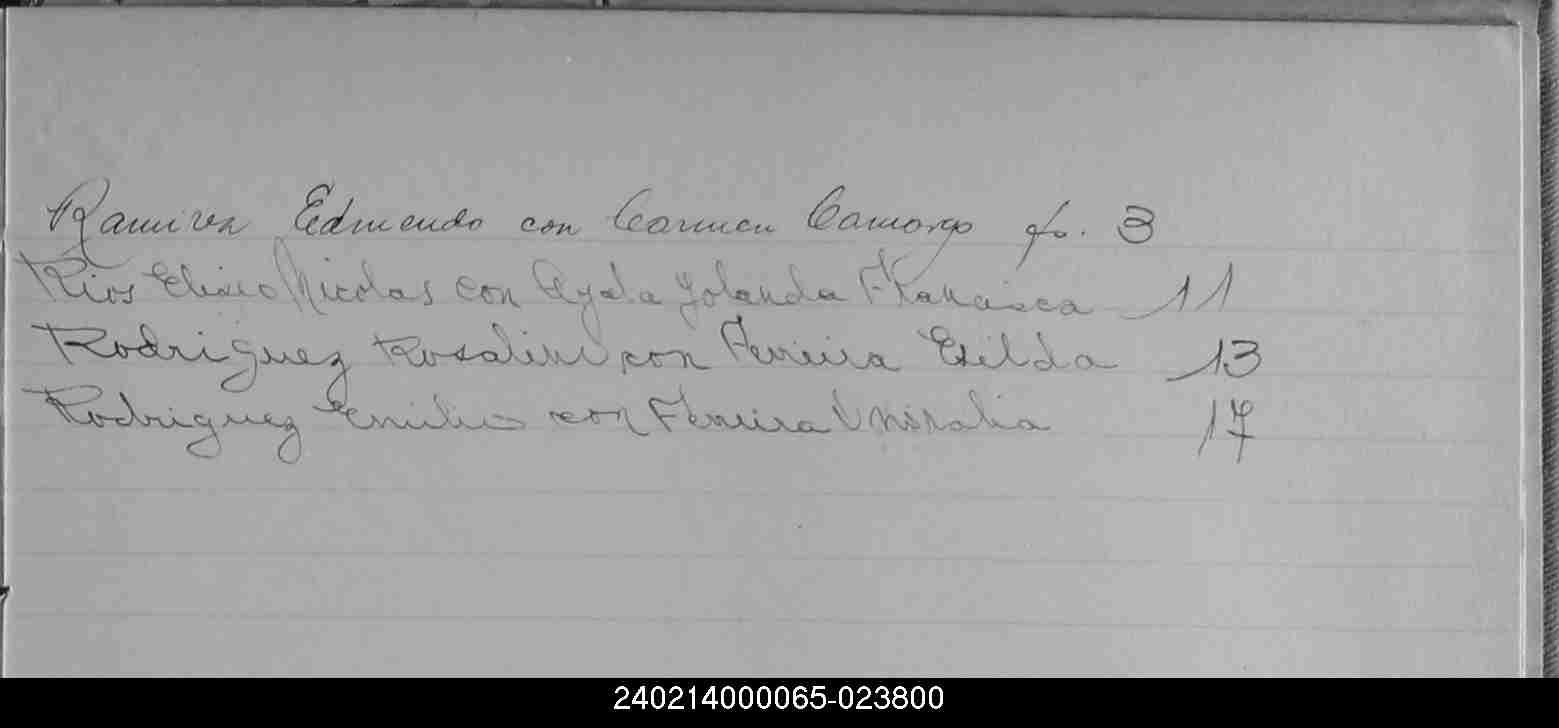 Ramirez Edmundo con Carmen Camargo fo. 3
Rios Eliseo Nicolas con Ayala Yolanda Francisca 11
Rodriguez Rosalino con Ferreira Esilda 13
Rodriguez Emilio con Ferreira 17
240214000065-023800